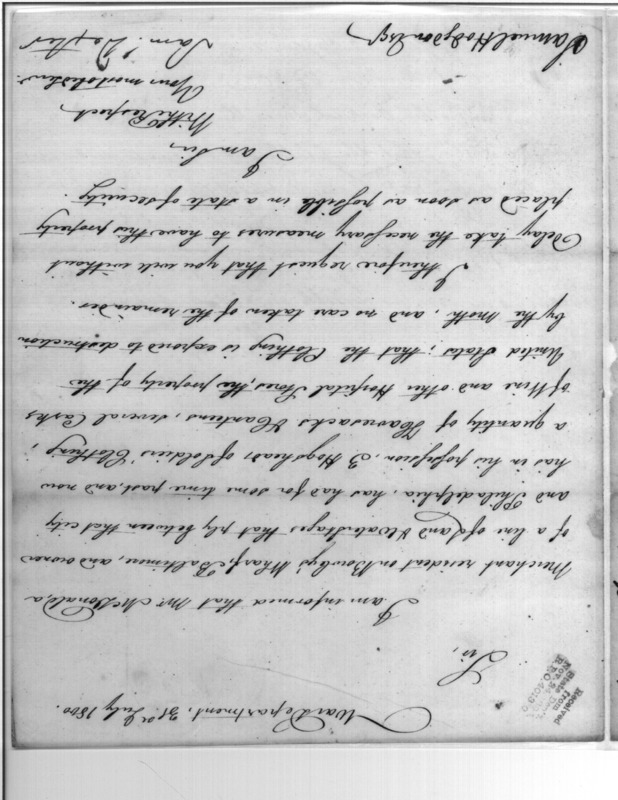 War Department, 31st July 1800.
Sir,
I am informed that Mr. McDonald, a
Merchant resident on Bowly's Wharf, Baltimore, and owner
of a line of Land & Water Stages that ply between that city
and Philadelphia, has had for some time past, and now
has in his possession, 3 Hogsheads of Soldiers Clothing,
a quantity of Haversacks & Canteens, several Casks
of Wine and other Hospital Stores, the property of the
United States; that the Clothing is exposed to destruction
by the Moth, and no care taken of the remainder.
I therefore request that you will without
delay take the necessary measures to have this property
placed as soon as possible in a state of security.
I am Sir,
With Respect,
Your most obed. Serv.
Sam. Dexter
Samuel Hodgdon Esqr.
Received
from
State Dep't
Nov. 24
R.&P. 4019